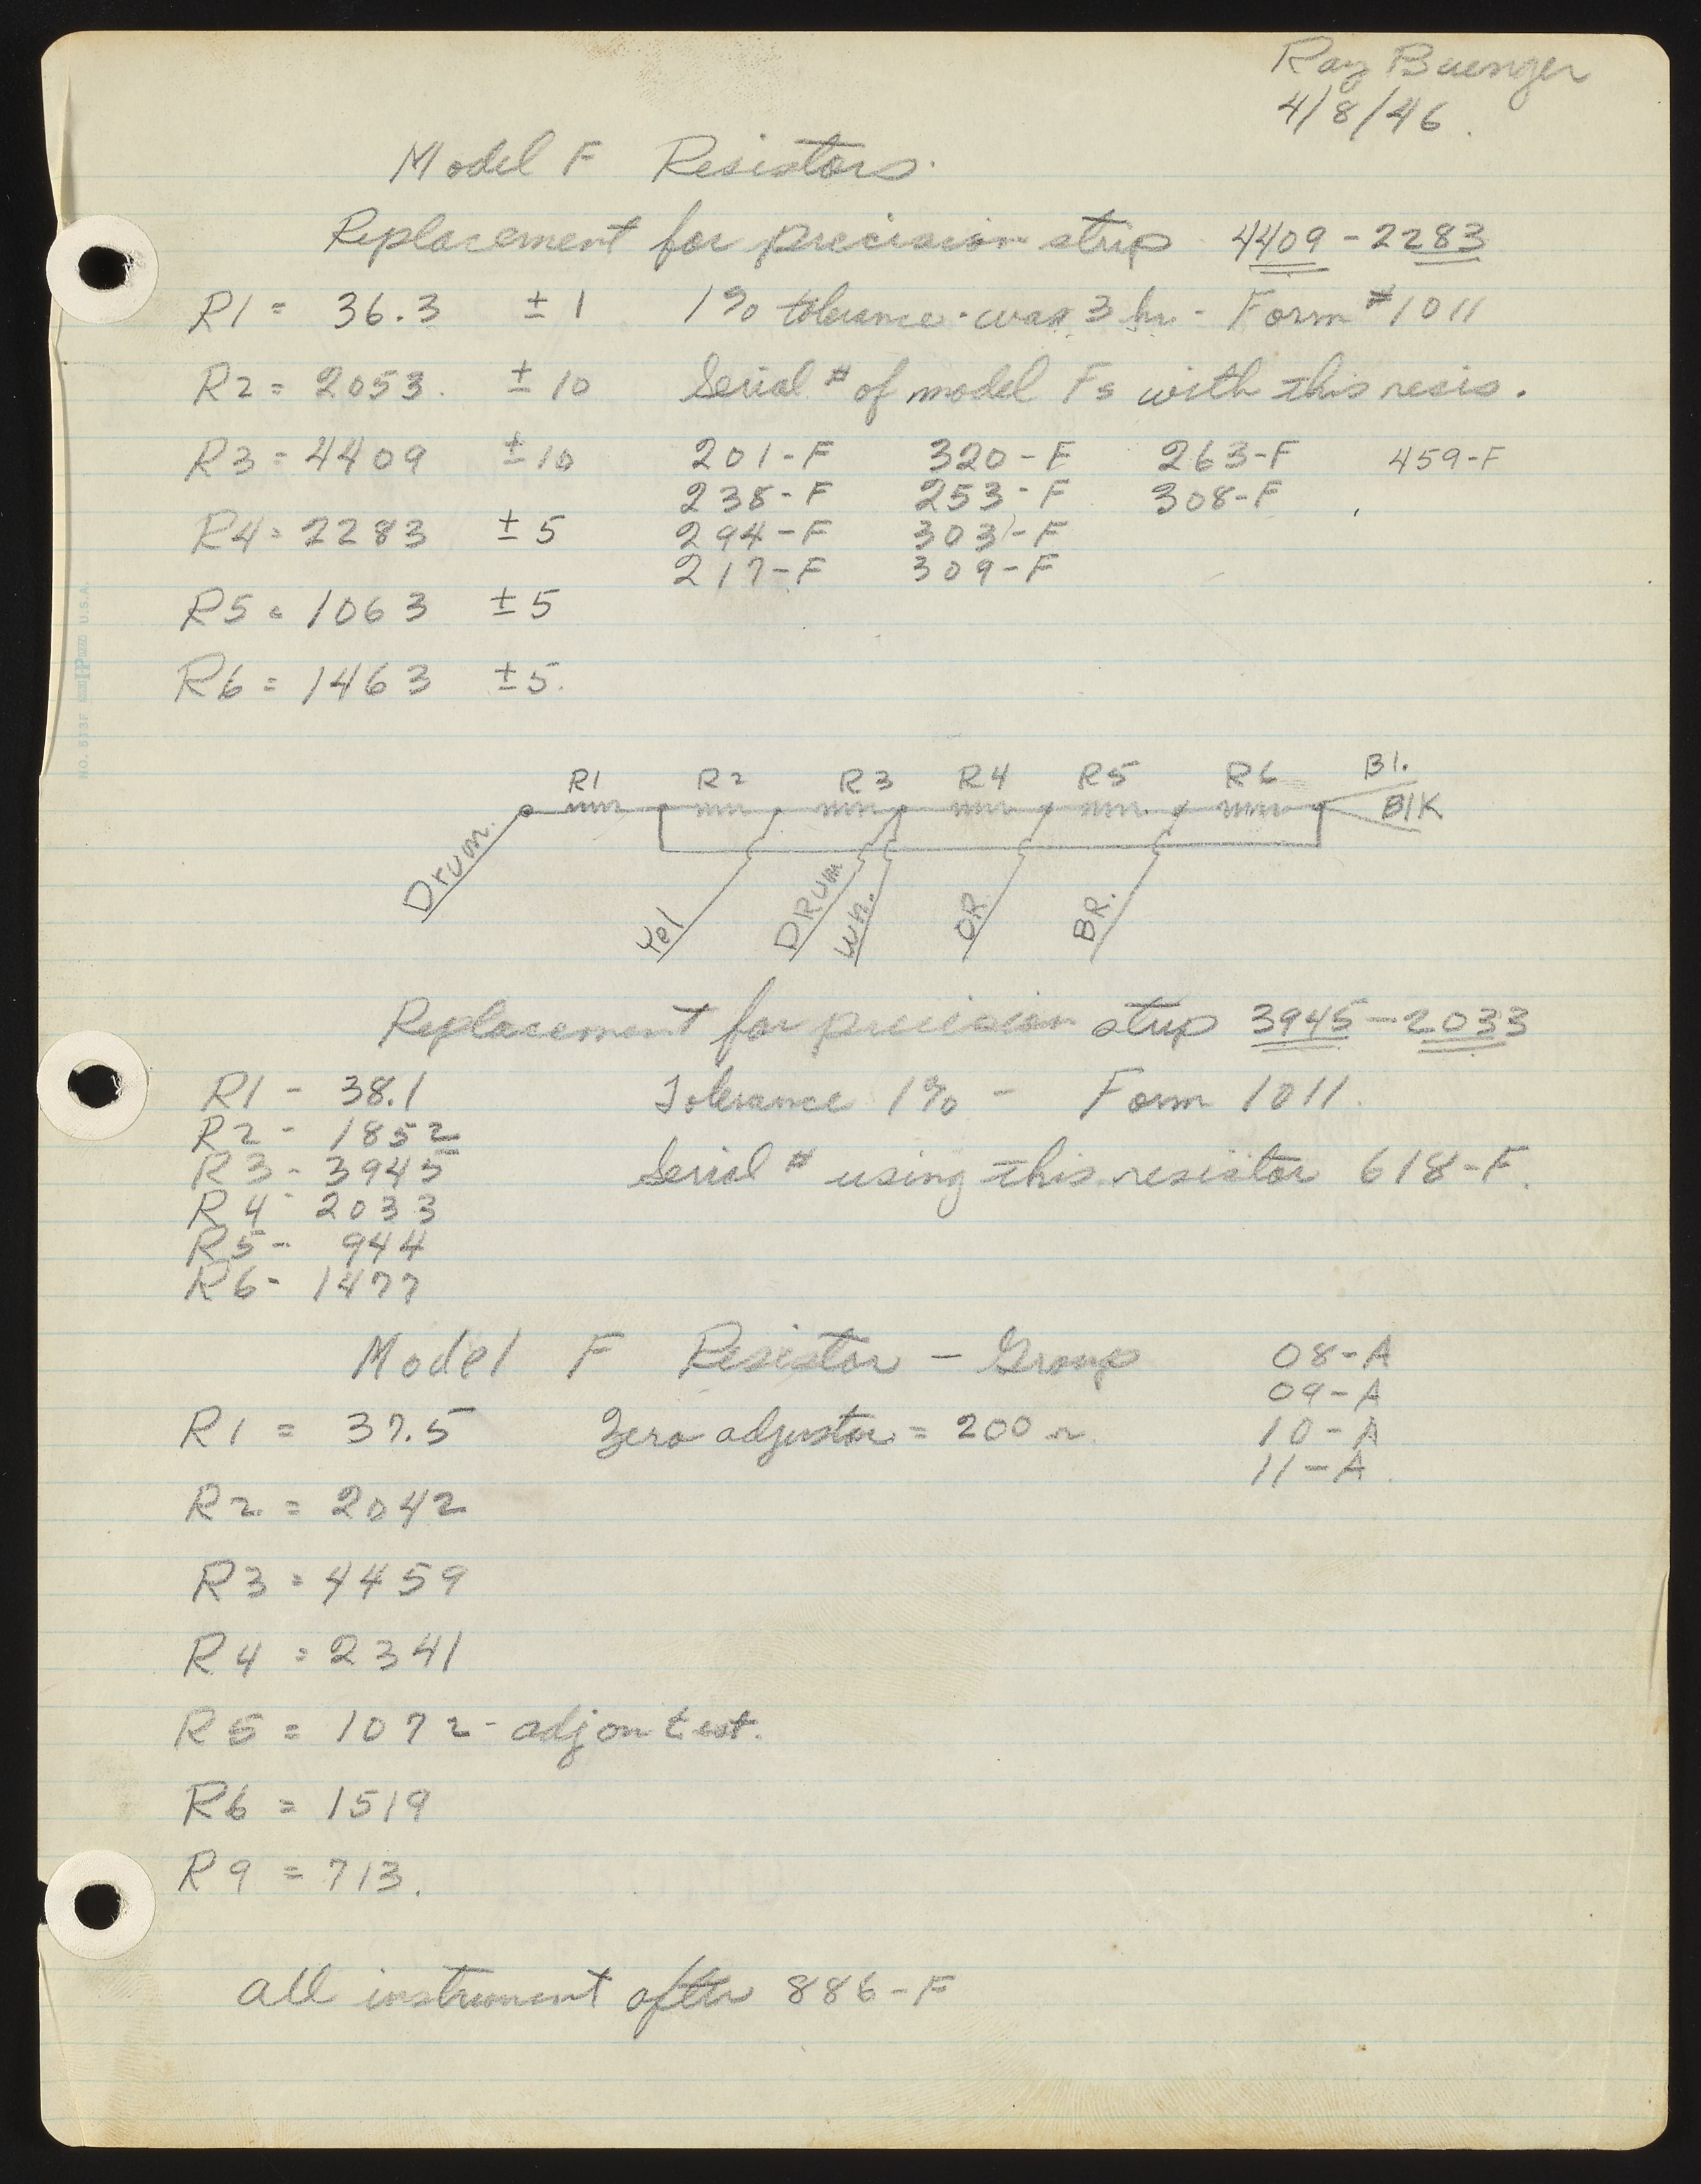 Ray Buenger
4/8/46.
Model F Resistors.
Replacement for precision strip 4409-2283
R1 = 36.3 ± 1 1% tolerance - was 3 hr - Form #1011
R2 = 2053. ± 10 Serial # of model Fs with this resis.
R3 = 4409 ± 10 201-F 320-F 263-F 459-F
238-F 253-F 308-F
R4 = 2283 ± 5 294-F 303-F
217-F 309-F
R5 = 1063 ± 5
R6 = 1463 ± 5.
R1 R2 R3 R4 R5 R6 Bl.
Blk
Drum. Yel DRUM Wh. OR BR.
Replacement for precision strip 3945-2033
R1 - 38.1 Tolerance 1% - Form 1011.
R2 - 1852
R3 - 3945 Serial # using this resistor 618-F.
R4 - 2033
R5 - 944
R6 - 1477
Model F Resistor - Group 08-A
09-A
R1 = 37.5 Zero adjustor = 200 Ω 10-A
11-A.
R2 = 2042
R3 = 4459
R4 = 2341
R5 = 1072 - adj on test.
R6 = 1519
R9 = 713.
all instrument after 886-F